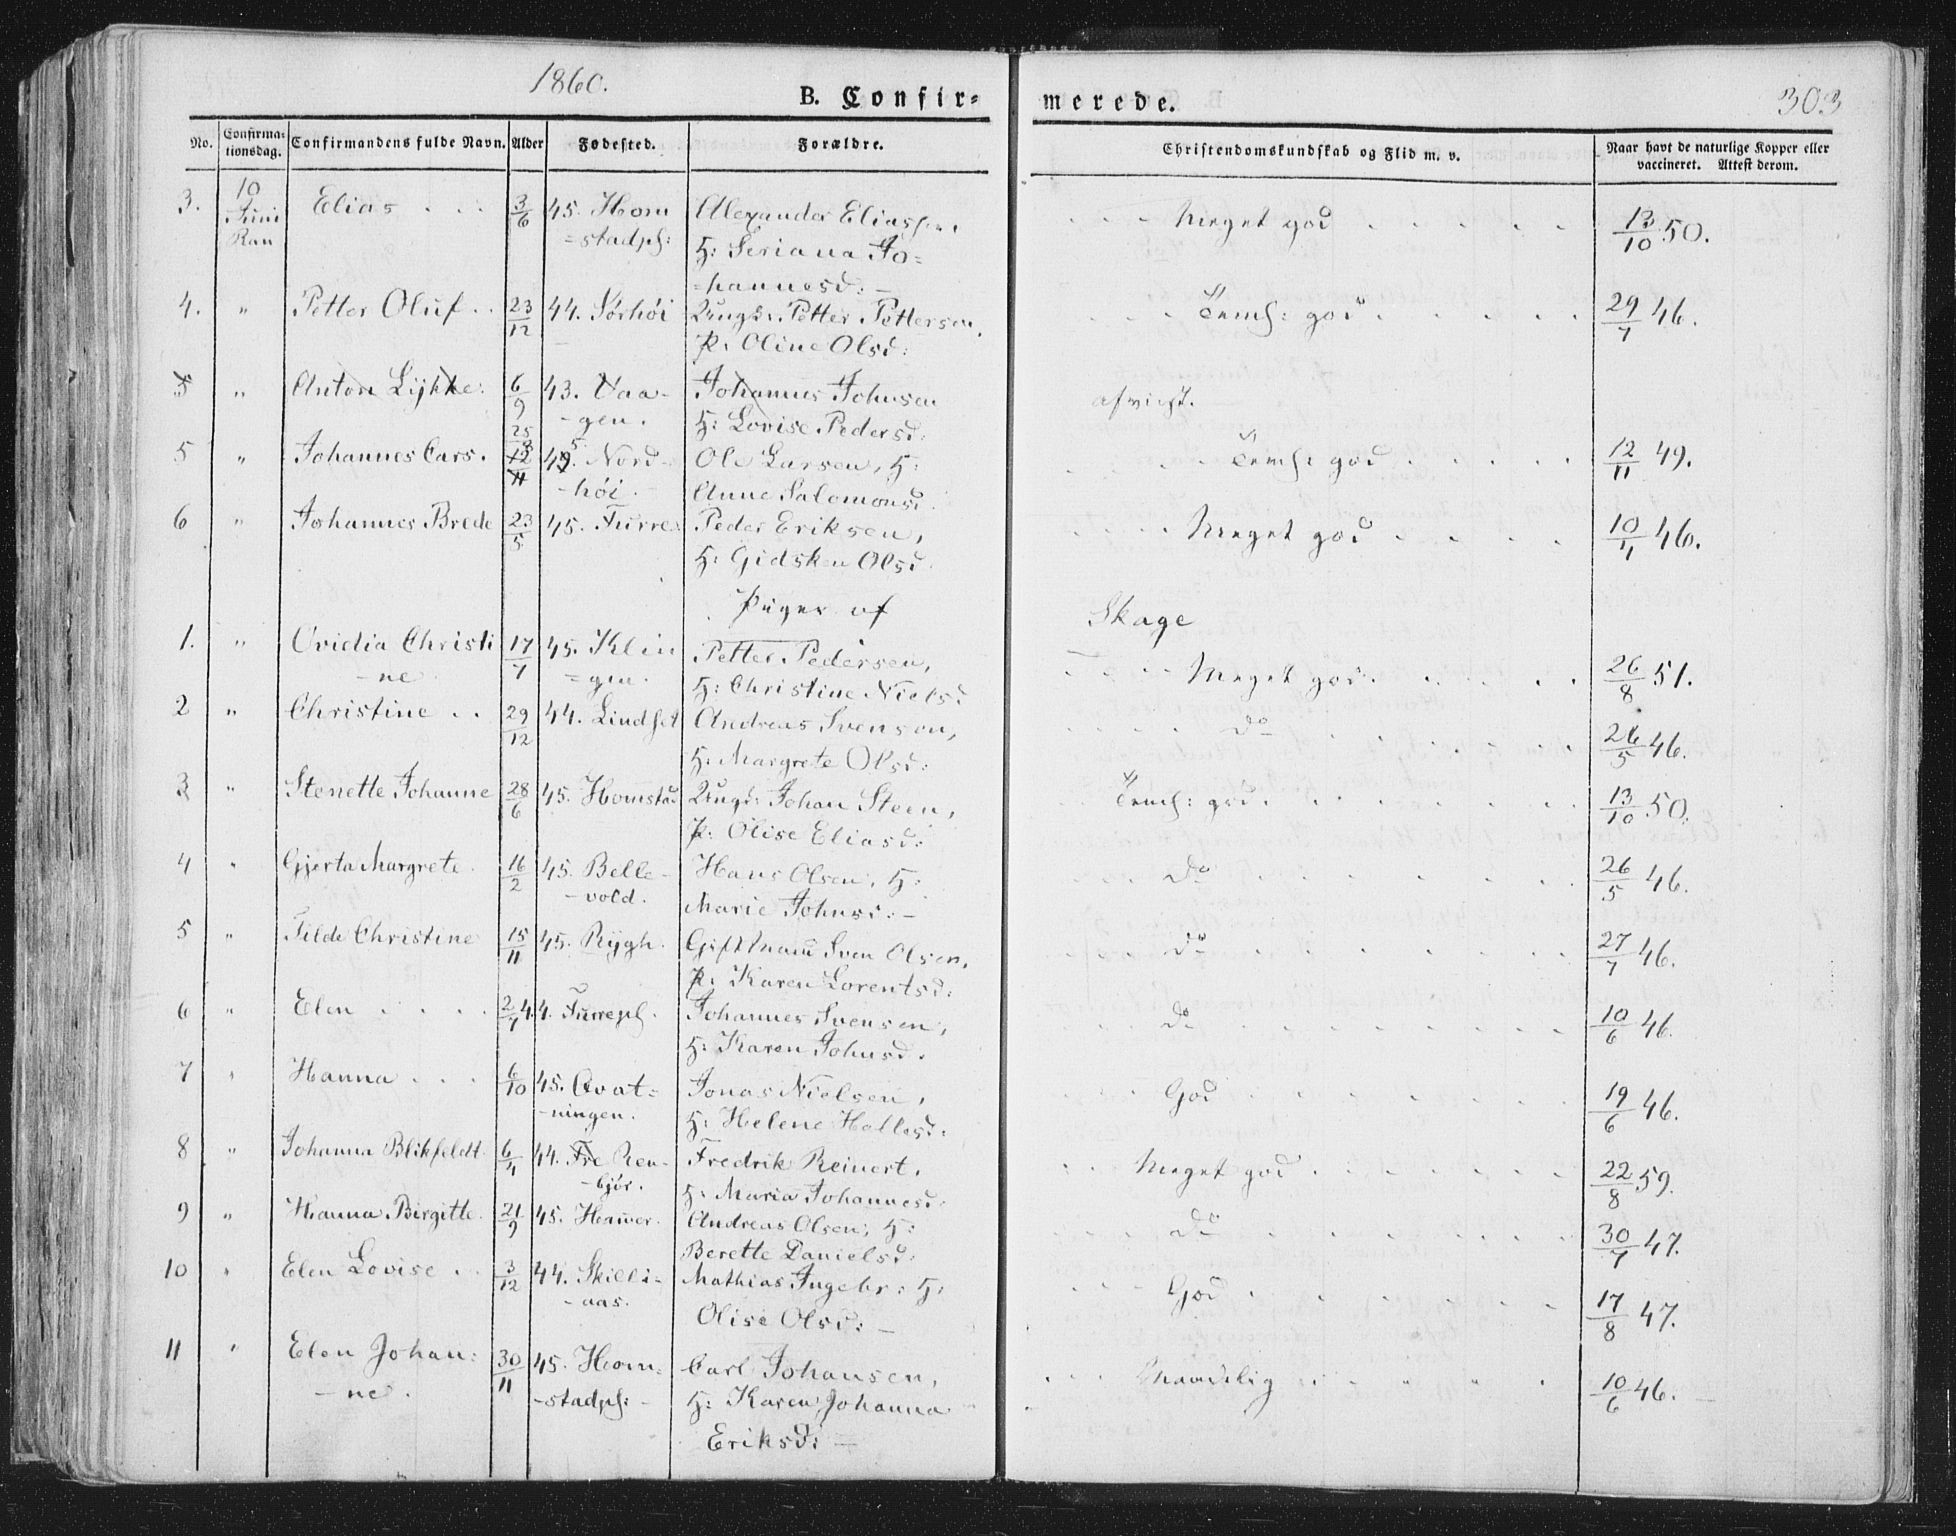 1860.
B. Confirmerede.
303
No. Confirmationsdag. Confirmandens fulde Navn. Alder Fødested. Forældre. Christendomskundskab og Flid m. v. Naar havt de naturlige Kopper eller vaccineret. Attest derom.
3. 10 Juni Ran Elias . . . 3/6 45. Hom Alexander Eliassen, . . . Meget god . . . . . 13/10 50.
=stadpl: H: Seriana Jo=
=hannesd: —
4. " Petter Oluf . . 23/12 44. Sørhøi Ungk: Petter Pettersen, . . . Temel: god . . . . . 29/7 46.
P. Oline Olsd:
5 " Anton Lykke: 6/9 43. Vaa- Johannes Johnsen afviist.
-gen. H: Lovise Pedersd:
5 " Johannes Cars. 25/3 12/11 45. Nord- Ole Larsen, H: . . . Temel: god . . . . . 12/11 49.
-høi. Anne Salomonsd.
6 " Johannes Brede 23/5 45. Furre Peder Eriksen, . . . . Meget god . . . . 10/4 46.
H: Gidsken Olsd.
Piger af Skage
1. " Ovidia Christi 17/7 45. Klin Petter Pedersen, . . . Meget god . . . . . 26/8 51.
-ne. =gen. H: Christine Nielsd
2 " Christine . . 29/12 44. Lindset Andreas Svensen, . . . . . do . . . . . 26/5 46.
H: Margrete Olsd:
3 " Stenette Johanne 28/6 45. Homstad Ungk: Johan Steen, . . Temel: god . . . . . . 13/10 50.
P: Olise Eliasd:
4 " Gjerta Margrete . 16/2 45. Belle- Hans Olsen, H: . . . Do . . . . . 26/5 46.
-vold. Marie Johnsd: —
5 " Tilde Christine 15/11 45. Rygh. Gift Mand Sven Olsen, . . . Do . . . . . 27/7 46.
P. Karen Lorentsd:
6 " Elen . . . . 2/7 44. Furrepl. Johannes Svensen, . . Do . . . . . 10/6 46.
H: Karen Johnsd.
7 " Hanna . . . 6/10 45. Qvat= Jonas Nielsen, . . . God . . . . . 19/6 46.
-ningen. H: Helene Hallesd:
8 " Johanna Blikfeldt. 6/4 44. Fre Ren- Fredrik Reinert, . . Meget god . . . . . 22/8 59.
-björ. H: Maria Johannesd:
9 " Hanna Birgitte. 21/9 45. Heimer. Andreas Olsen, H: . . . Do . . . . . 30/7 47.
Berette Danielsd:
10 " Elen Lovise . . 3/12 44. Skilli- Mathias Ingebr: H: . . . God . . . . . 17/8 47.
-aas. Olise Olsd: —
11 " Elen Johan: 30/11 45. Hom= Carl Johansen, . . . Maadelig . . . . . 10/6 46. —
-ne. -stadpl: - H: Karen Johanna
Eriksd: —